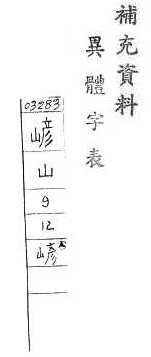 補充資料
異體字表
03283
嵃
山
9
12
嵃